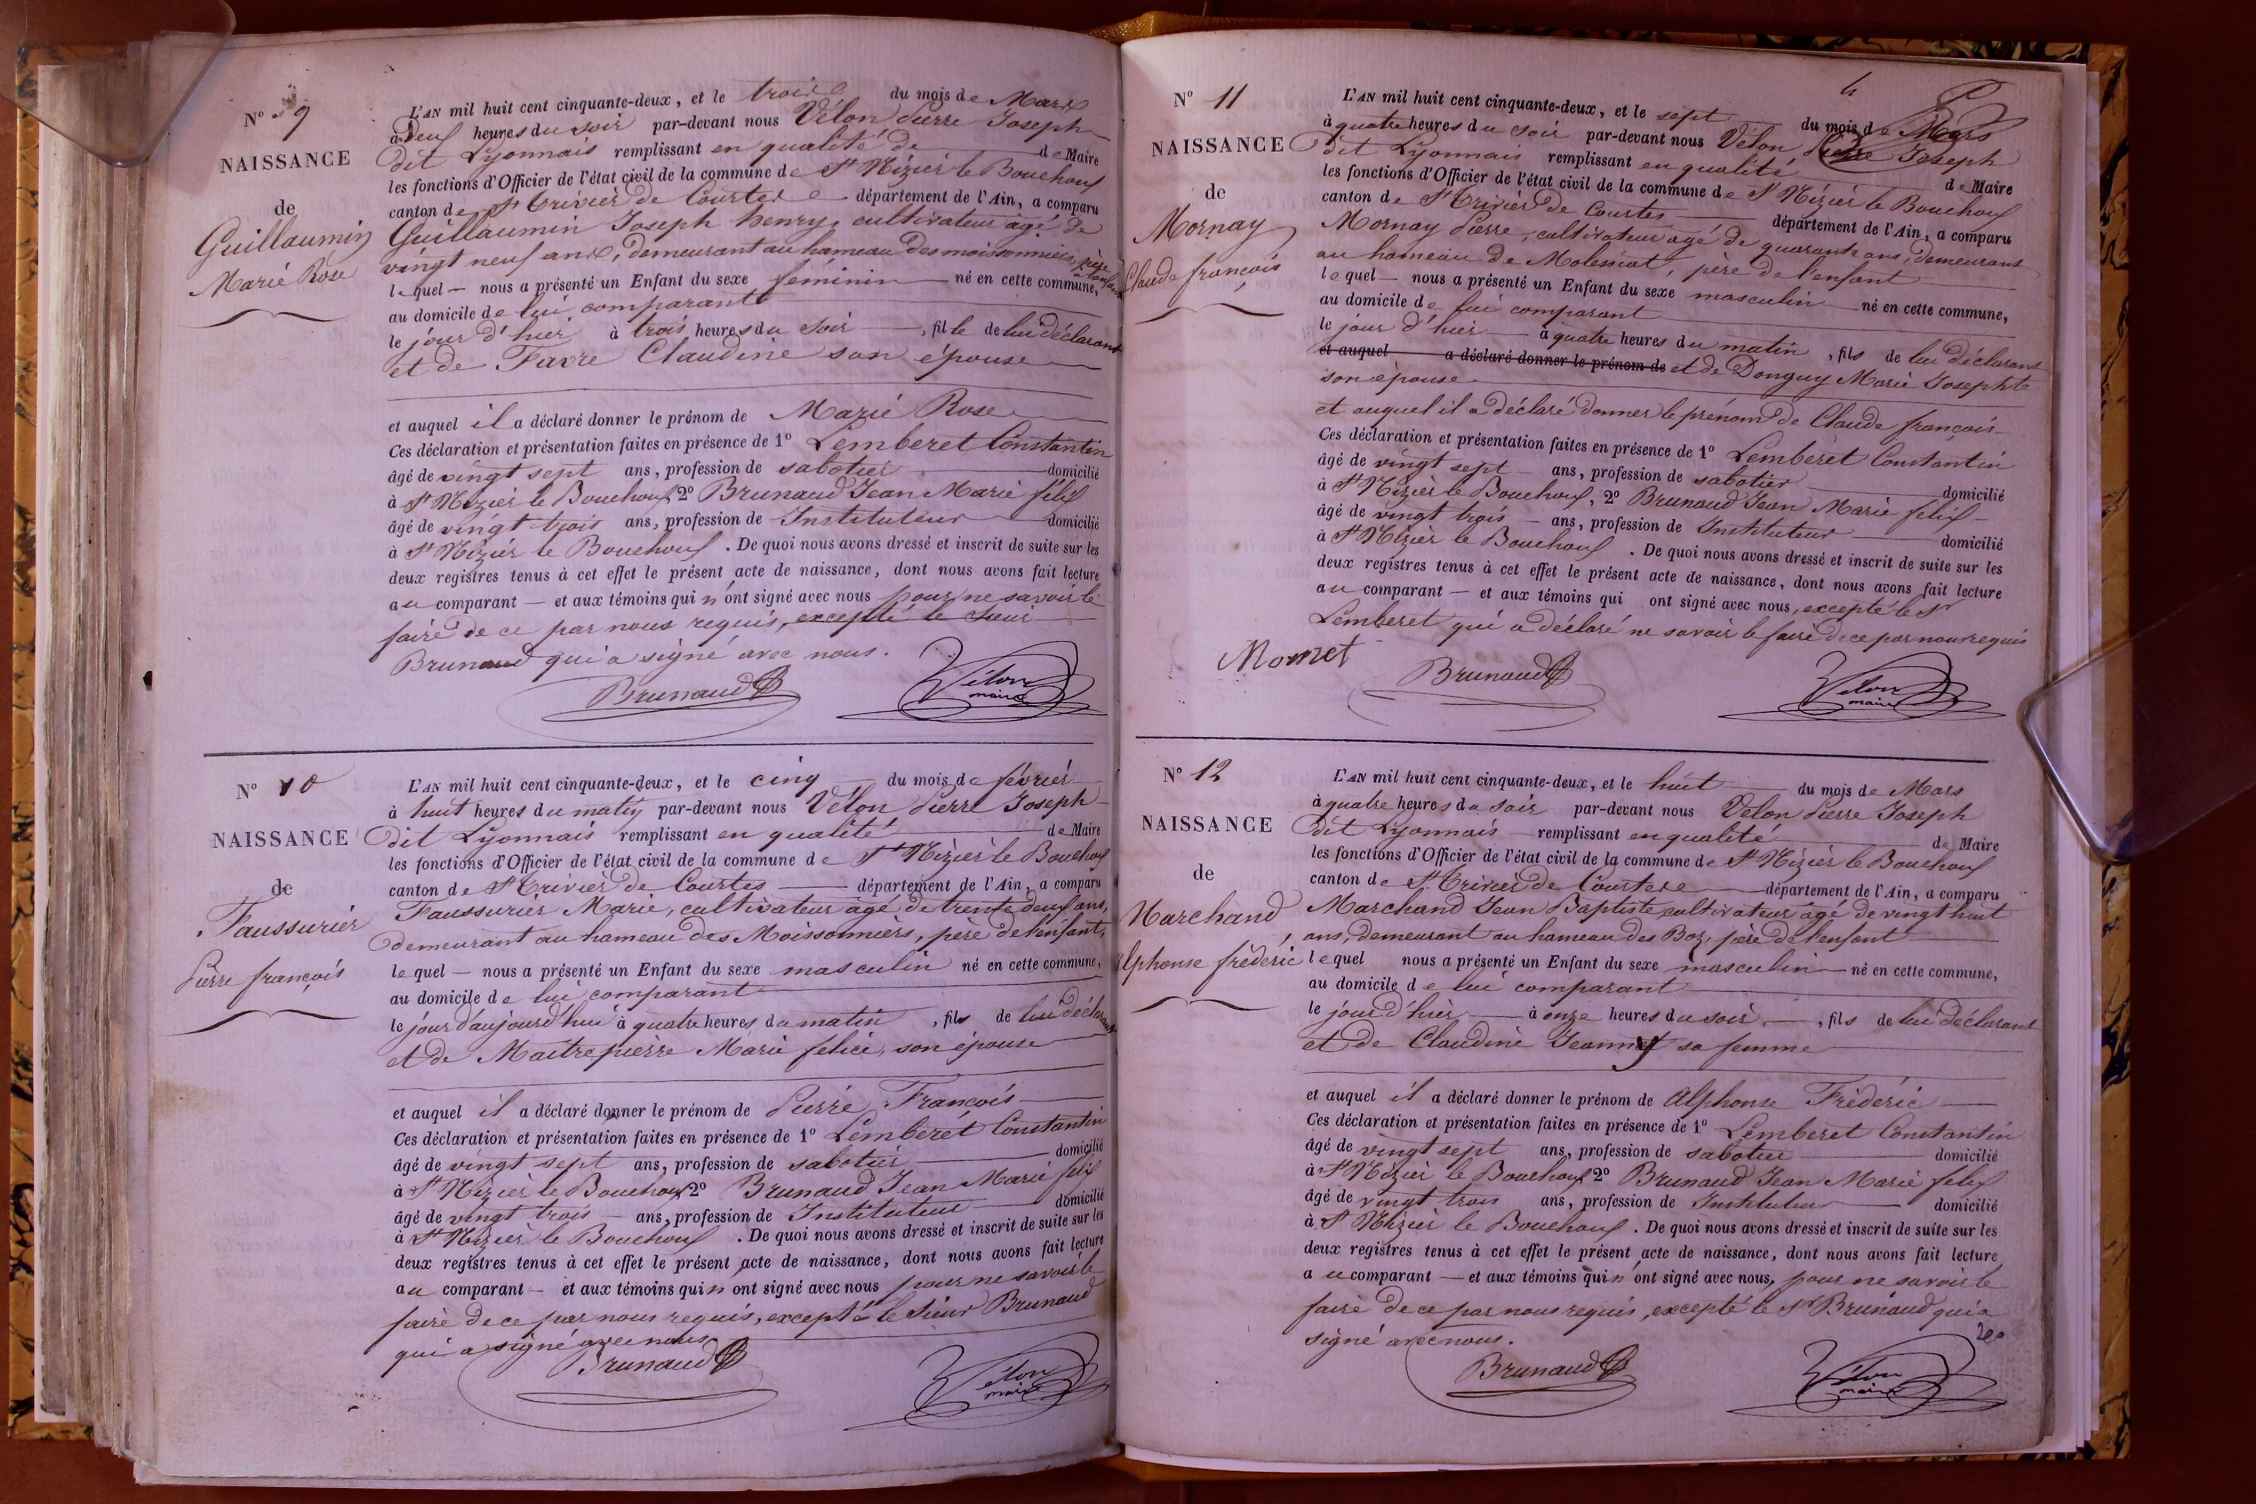 N° 9
NAISSANCE
de
Guillaumin
Marie Rose
L'AN mil huit cent cinquante-deux, et le trois du mois de Mars
à Deux heures du soir par-devant nous Vélon Pierre Joseph
dit Lyonnais remplissant en qualité de de Maire
les fonctions d'Officier de l'état civil de la commune de St Nizier le Bouchoux
canton de St Trivier de Courtes département de l'Ain, a comparu
Guillaumin Joseph henry, cultivateur âgé de
vingt neuf ans, demeurant au hameau des moissonniers, père de l'enfant
lequel — nous a présenté un Enfant du sexe féminin né en cette commune,
au domicile de lui comparant
le jour d'hier à trois heures du soir, fille de lui déclarant
et de Favre Claudine son épouse
et auquel il a déclaré donner le prénom de Marie Rose
Ces déclaration et présentation faites en présence de 1° Lemberet Constantin
âgé de vingt sept ans, profession de sabotier domicilié
à St Nizier le Bouchoux, 2° Brunaud Jean Marie félix
âgé de vingt trois ans, profession de Instituteur domicilié
à St Nizier le Bouchoux. De quoi nous avons dressé et inscrit de suite sur les
deux registres tenus à cet effet le présent acte de naissance, dont nous avons fait lecture
au comparant — et aux témoins qui n'ont signé avec nous pour ne savoir le
faire de ce par nous requis, excepté le sieur
Brunaud qui a signé avec nous.
Brunaud Vélon
maire
N° 10
NAISSANCE
de
Faussurier
Pierre françois
L'AN mil huit cent cinquante-deux, et le cinq du mois de février
à huit heures du matin par-devant nous Vélon Pierre Joseph
dit Lyonnais remplissant en qualité de Maire
les fonctions d'Officier de l'état civil de la commune de St Nizier le Bouchoux
canton de St Trivier de Courtes département de l'Ain, a comparu
Faussurier Marie, cultivateur âgé de trente deux ans,
demeurant au hameau des Moissonniers, père de l'enfant,
lequel — nous a présenté un Enfant du sexe masculin né en cette commune,
au domicile de lui comparant
le jour d'aujourd'hui à quatre heures du matin, fils de lui déclarant
et de Maitrepierre Marie félicie, son épouse
et auquel il a déclaré donner le prénom de Pierre François
Ces déclaration et présentation faites en présence de 1° Lemberet Constantin
âgé de vingt sept ans, profession de sabotier domicilié
à St Nizier le Bouchoux 2° Brunaud Jean Marie félix
âgé de vingt trois — ans, profession de Instituteur domicilié
à St Nizier le Bouchoux. De quoi nous avons dressé et inscrit de suite sur les
deux registres tenus à cet effet le présent acte de naissance, dont nous avons fait lecture
au comparant — et aux témoins qui n'ont signé avec nous pour ne savoir le
faire de ce par nous requis, excepté le sieur Brunaud
qui a signé avec nous
Brunaud Vélon
maire
4
N° 11
NAISSANCE
de
Mornay
Claude françois
L'AN mil huit cent cinquante-deux, et le sept du mois de Mars
à quatre heures du soir par-devant nous Vélon Pierre Joseph
dit Lyonnais remplissant en qualité de Maire
les fonctions d'Officier de l'état civil de la commune de St Nizier le Bouchoux
canton de St Trivier de Courtes département de l'Ain, a comparu
Mornay Pierre, cultivateur âgé de quarante ans, demeurant
au hameau de Molessiat, père de l'enfant
lequel — nous a présenté un Enfant du sexe masculin né en cette commune,
au domicile de lui comparant
le jour d'hier à quatre heures du matin, fils de lui déclarant
et auquel a déclaré donner le prénom de et de Donguy Marie Josephte
son épouse
et auquel il a déclaré donner le prénom de Claude françois
Ces déclaration et présentation faites en présence de 1° Lemberet Constantin
âgé de vingt sept ans, profession de sabotier domicilié
à St Nizier le Bouchoux, 2° Brunaud Jean Marie félix
âgé de vingt trois — ans, profession de Instituteur domicilié
à St Nizier le Bouchoux. De quoi nous avons dressé et inscrit de suite sur les
deux registres tenus à cet effet le présent acte de naissance, dont nous avons fait lecture
au comparant — et aux témoins qui ont signé avec nous, excepté le Sr
Lemberet qui a déclaré ne savoir le faire de ce par nous requis
Brunaud Vélon
maire
N° 12
NAISSANCE
de
Marchand
Alphonse fréderic
L'AN mil huit cent cinquante-deux, et le huit du mois de Mars
à quatre heures du soir par-devant nous Vélon Pierre Joseph
dit Lyonnais remplissant en qualité de Maire
les fonctions d'Officier de l'état civil de la commune de St Nizier le Bouchoux
canton de St Trivier de Courtes département de l'Ain, a comparu
Marchand Jean Baptiste cultivateur âgé de vingt huit
ans, demeurant au hameau des Boz, père de l'enfant
lequel nous a présenté un Enfant du sexe masculin né en cette commune,
au domicile de lui comparant
le jour d'hier à onze heures du soir, fils de lui déclarant
et de Claudine Jeannet sa femme
et auquel il a déclaré donner le prénom de Alphonse Fréderic
Ces déclaration et présentation faites en présence de 1° Lemberet Constantin
âgé de vingt sept ans, profession de sabotier domicilié
à St Nizier le Bouchoux 2° Brunaud Jean Marie félix
âgé de vingt trois ans, profession de Instituteur domicilié
à St Nizier le Bouchoux. De quoi nous avons dressé et inscrit de suite sur les
deux registres tenus à cet effet le présent acte de naissance, dont nous avons fait lecture
au comparant — et aux témoins qui n'ont signé avec nous, pour ne savoir le
faire de ce par nous requis, excepté le Sr Brunaud qui a
signé avec nous.
Brunaud Vélon
maire